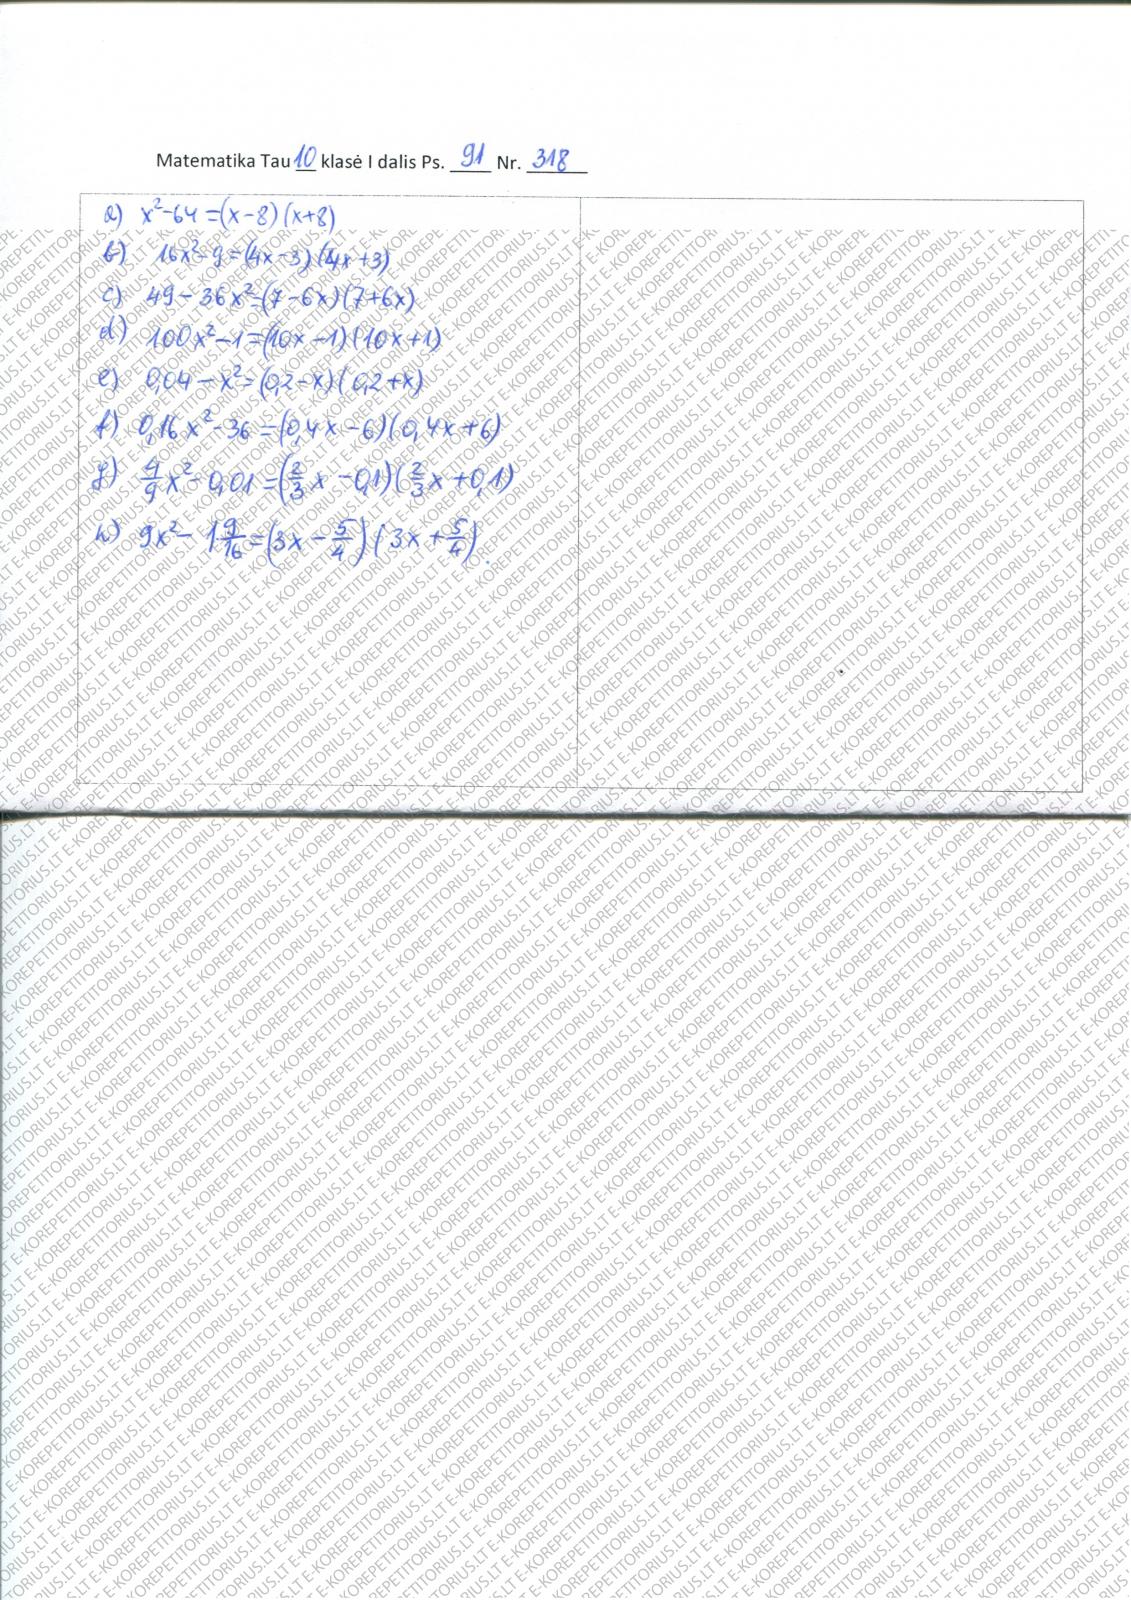 Matematika Tau 10 klasė I dalis Ps. 91 Nr. 318
a) x²-64=(x-8)(x+8)
b) 16x²-9=(4x-3)(4x+3)
c) 49-36x²=(7-6x)(7+6x)
d) 100x²-1=(10x-1)(10x+1)
e) 0,04-x²=(0,2-x)(0,2+x)
f) 0,16x²-36=(0,4x-6)(0,4x+6)
g) 4/9x²-0,01=(2/3x-0,1)(2/3x+0,1)
h) 9x²-1 9/16=(3x-5/4)(3x+5/4).
E-KOREPETITORIUS.LT